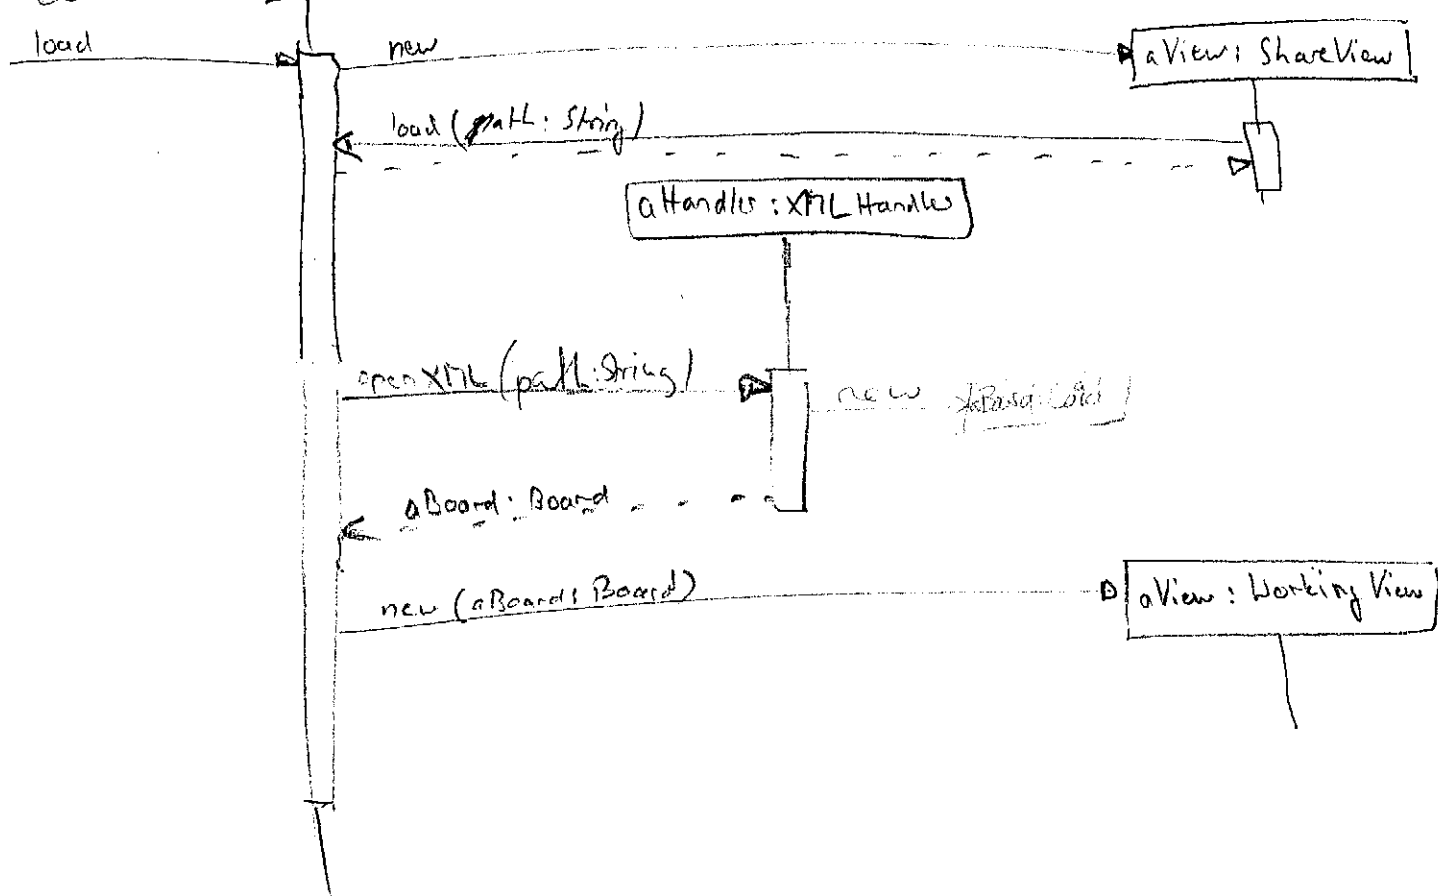 load
new
aView: ShareView
load (path: String)
aHandler: XMLHandler
openXML (path: String)
new
aBoard: Board
new (aBoard: Board)
aView: Working View